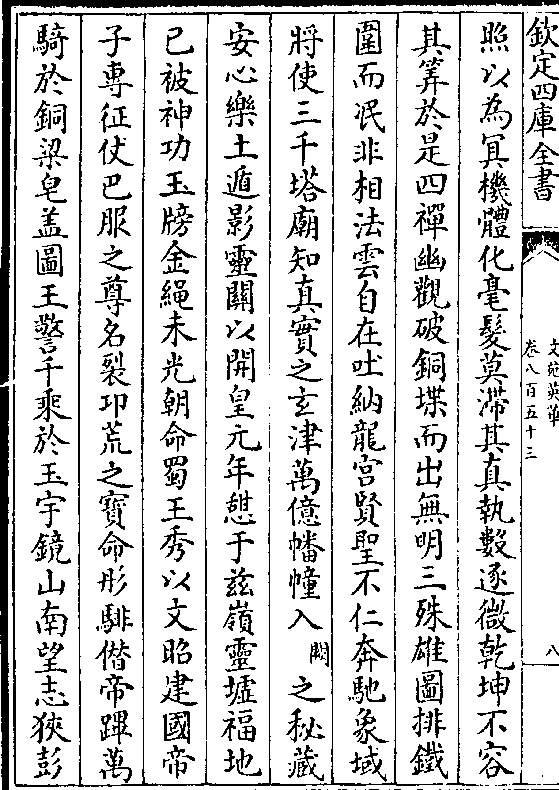 欽定四庫全書
文苑英華
卷八百五十三
八
照以為冥機體化毫髮莫滯其真執數逐微乾坤不容
其筭於是四禪幽觀破銅堞而出無明三殊雄圖排鐵
圍而泯非相法雲自在吐納龍宫賢聖不仁奔馳象域
將使三千塔廟知真實之玄津萬億幡幢入闕之秘藏
安心樂土遁影靈關以開皇元年憇于兹嶺靈墟福地
已被神功玉牓金繩未光朝命蜀王秀以文昭建國帝
子專征仗巴服之尊名裂邛荒之寶命彤騑僭帝蹕萬
騎於銅梁皂盖圖王警千乘於玉宇鏡山南望志狹彭